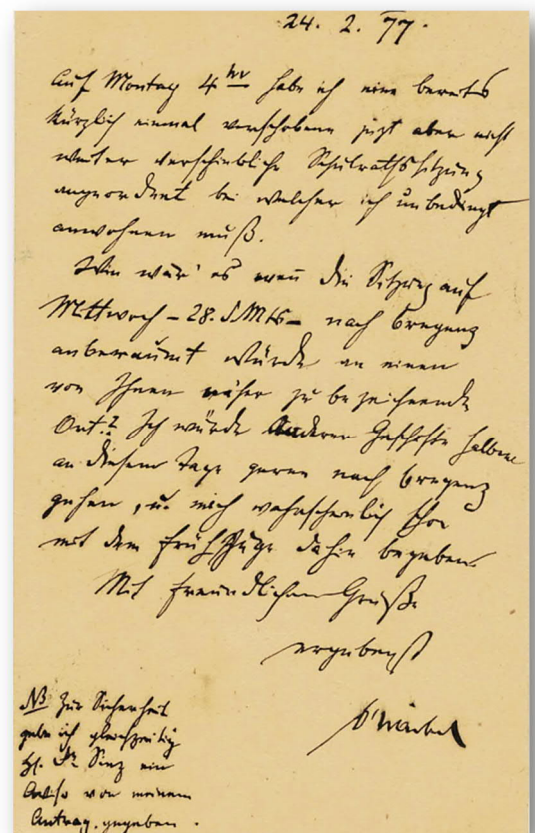 24. 2. 77.
Auf Montag 4 Uhr habe ich eine bereits
kürzlich einmal verschobene jezt aber nicht
weiter verschiebliche Schulrathssitzung
angeordnet bei welcher ich unbedingt
anwohnen muß.
Wie wär' es wenn die Sitzung auf
Mittwoch – 28. d. Mts – nach Bregenz
anberaumt würde an einen
von Ihnen näher zu bezeichnende
Ort? Ich würde anderer Geschäfte halber
an diesem Tage gerne nach Bregenz
gehen, u. mich wahrscheinlich schon
mit dem Frühzuge dahin begeben.
Mit freundlichem Gruße
ergebenst
NB Zur Sicherheit
gebe ich gleichzeitig
H. Dr. Sinz ein
Aviso von meinem
Antrag gegeben.